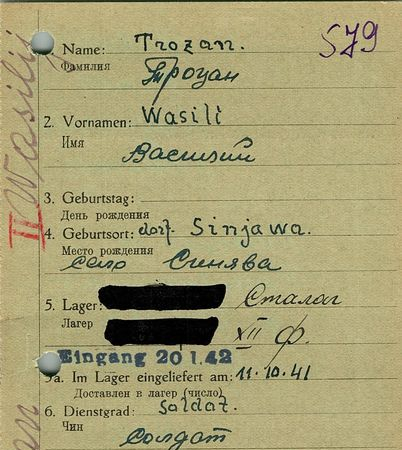 579
1. Name: Trozan.
Фамилия Троцан
2. Vornamen: Wasili
Имя
Василий
3. Geburtstag:
День рождения
4. Geburtsort: dorf. Sinjawa.
Место рождения
село Синява
5. Lager: Сталаг
Лагер XII Ф.
Eingang 20 1.42
5a. Im Lager eingeliefert am: 11.10.41
Доставлен в лагер (число)
6. Dienstgrad: Soldat.
Чин
солдат
II Wasilij